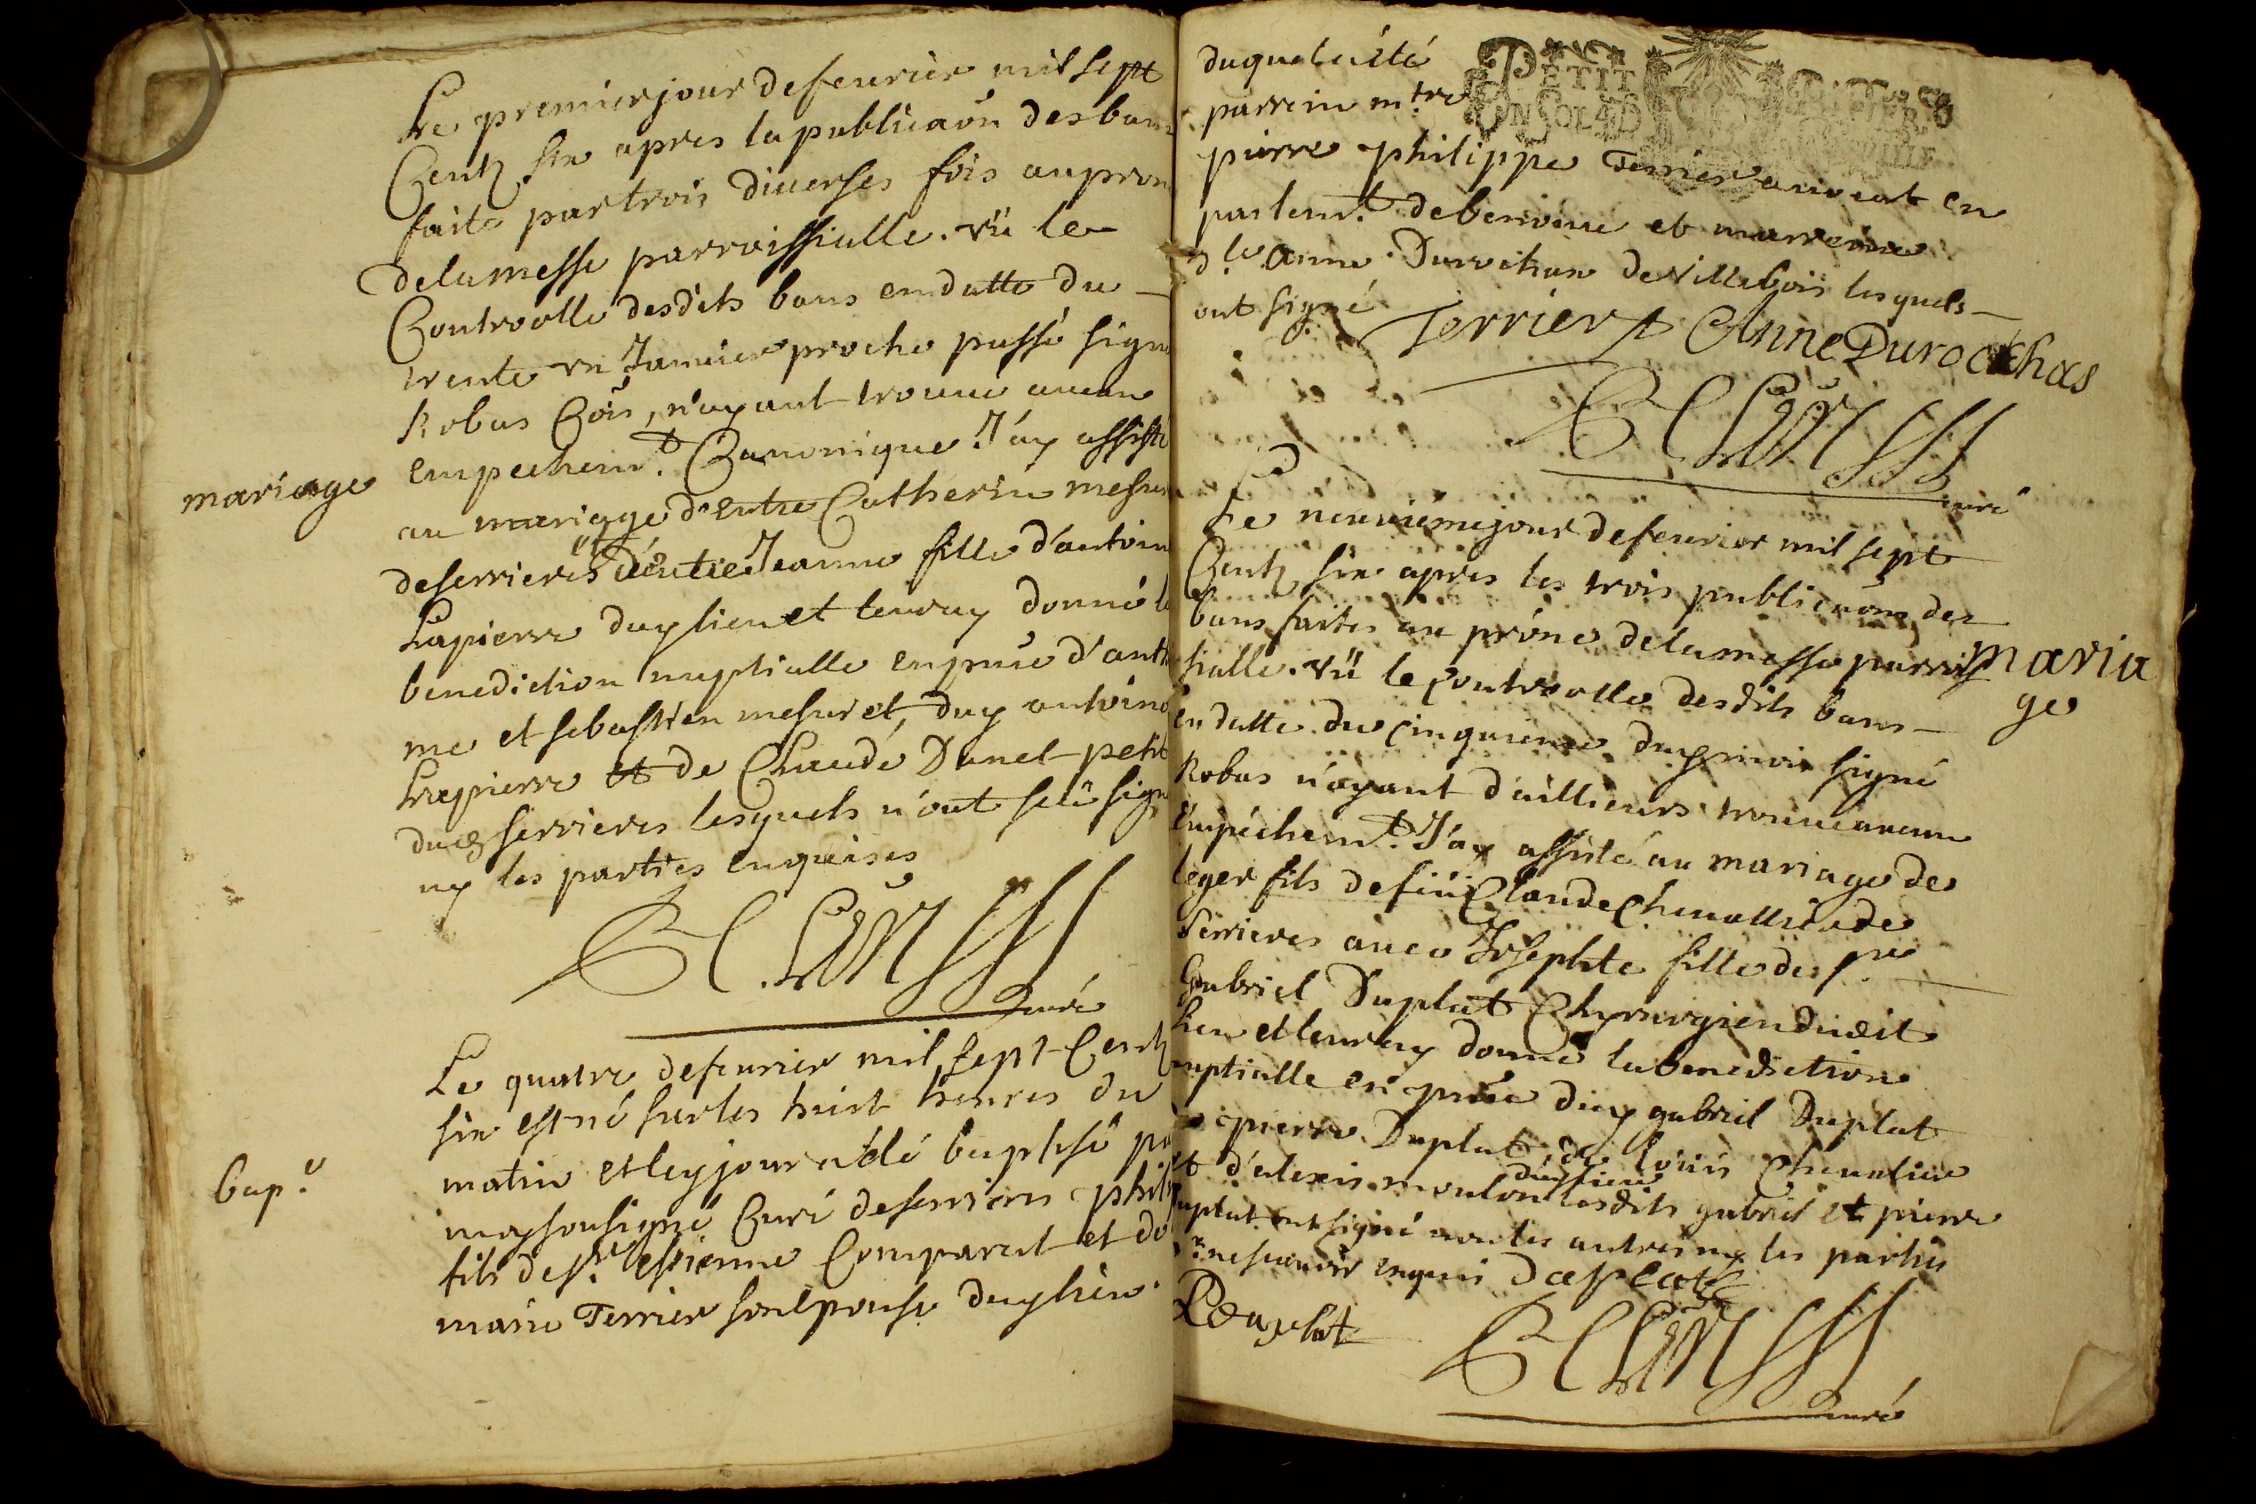 Le premier jour de feurier mil sept
Centz six apres la publicaôn des bans
faite par trois diuerses fois au pron
de la messe parroissialle. vû le
Controolle desdits bans en datte du
trente vn Januier proche passé signé
Robas Cõis, n'ayant trouué aucun
empechem.t Canonique. J'ay assisté
mariage
au mariage d'entre Catherin mesur
de serrieres d'entre Jeanne fille d'antoin
Lapierre duy lieu et leur ay donné la
benediction nuptialle en pnce d'anth
me et sebastien mesuret, duy antoine
Lapierre et de Claude Danel petit
dud serrieres lesquels n'ont sceu signer
ny les parties enquises
curé
Le quatre de feurier mil sept Centz
six est né sur les huit heures du
matin et ley jour a été baptisé pa
Bap.e
moy sousigné Curé de serrieres phili
fils de sr. estienne Comparet et do
marie Terrier son epouse duy lieu.
duquel a été
PETIT
parrein m.tre
pierre philippe Terrier auocat en
parlem.t de et marreine
d.lle anne Durochas de Villebois lesquels
ont signé
Terrier Anne Durochas
curé
Le neuuiéme jour de feurier mil sept
Centz six apres les trois publicaôns des
bans faites au prône de la messe parrois
maria
sialle. vû le Controolle desdits bans
ge
en datte du cinquieme duy mois signé
Robas n'ayant d'aillieurs trouué aucun
Empéchem.t J'ay assisté au mariage de
léger fils de feü Claude Cheuallier de
Serrieres auec Josephte fille de sr
Gabriel Duplat Chyrurgien dudit
lieu et leur ay donné la benediction
nuptialle en pnce duy gabriel Duplat
pierre Duplat, de loüis Cheualier
duy lieu
et d'alexis moulon lesdits gabriel et pierre
duplat ont signé non les autres ny les parties
enquis daplat
Duplat
curé